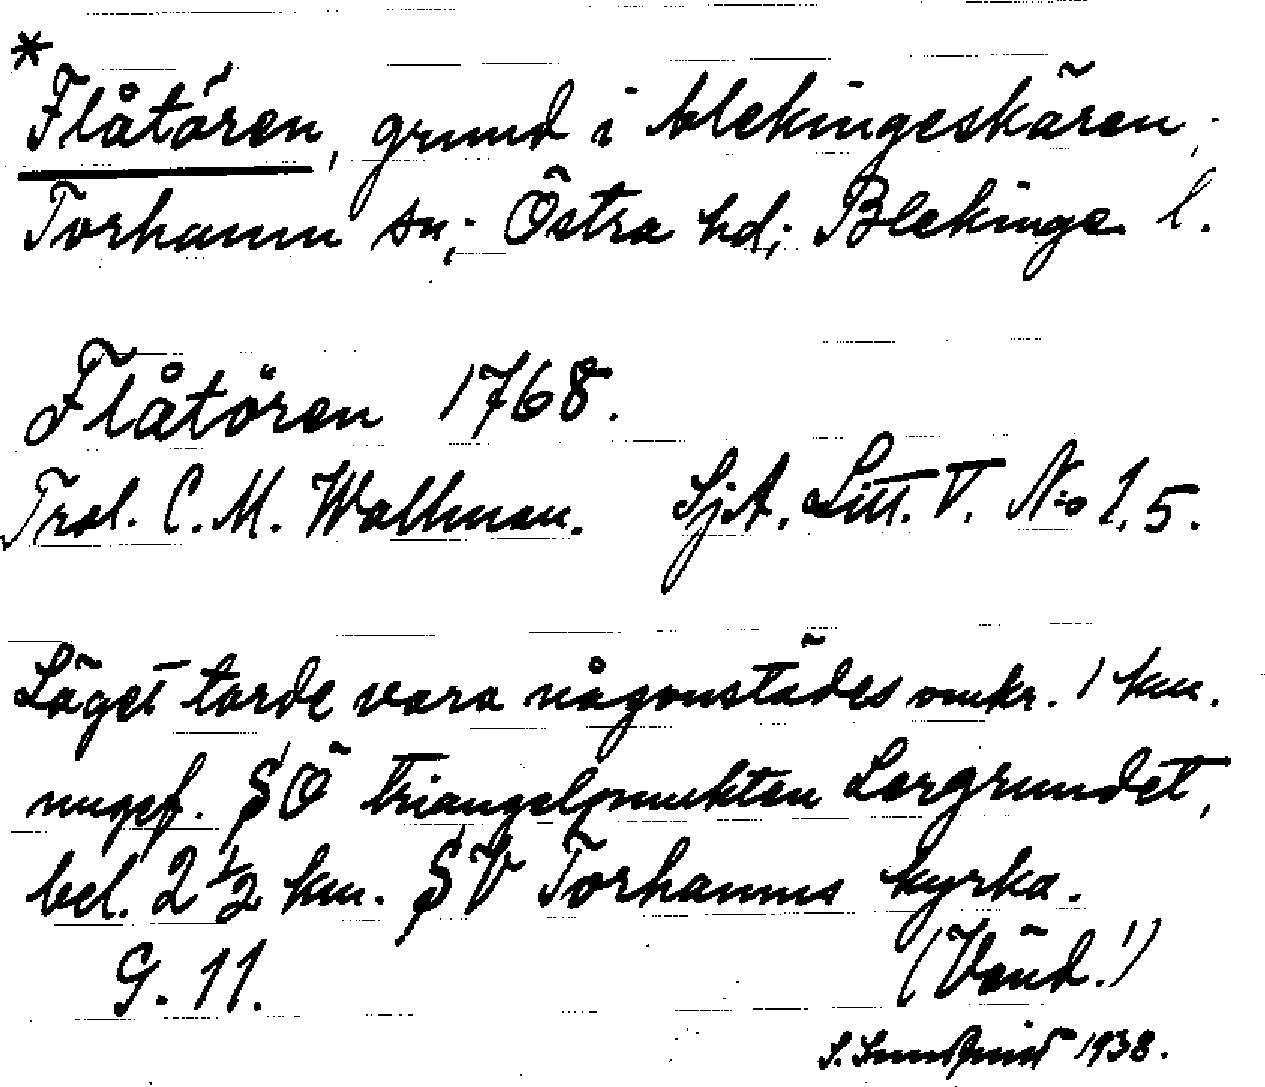 *
Flåtören, grund i blekingeskären,
Torhamn sn; Östra hd; Blekinge l.
Flåtören 1768.
Trol. C. M. Wallman. SjA. Litt. V. No 1.5.
Läget torde vara någonstädes omkr. 1 km.
ungef. SÖ triangelpunkten Lergrundet,
bel. 2 1/2 km. SV Torhamns kyrka.
G. 11. (Vänd!)
S. Sundqvist 1938.